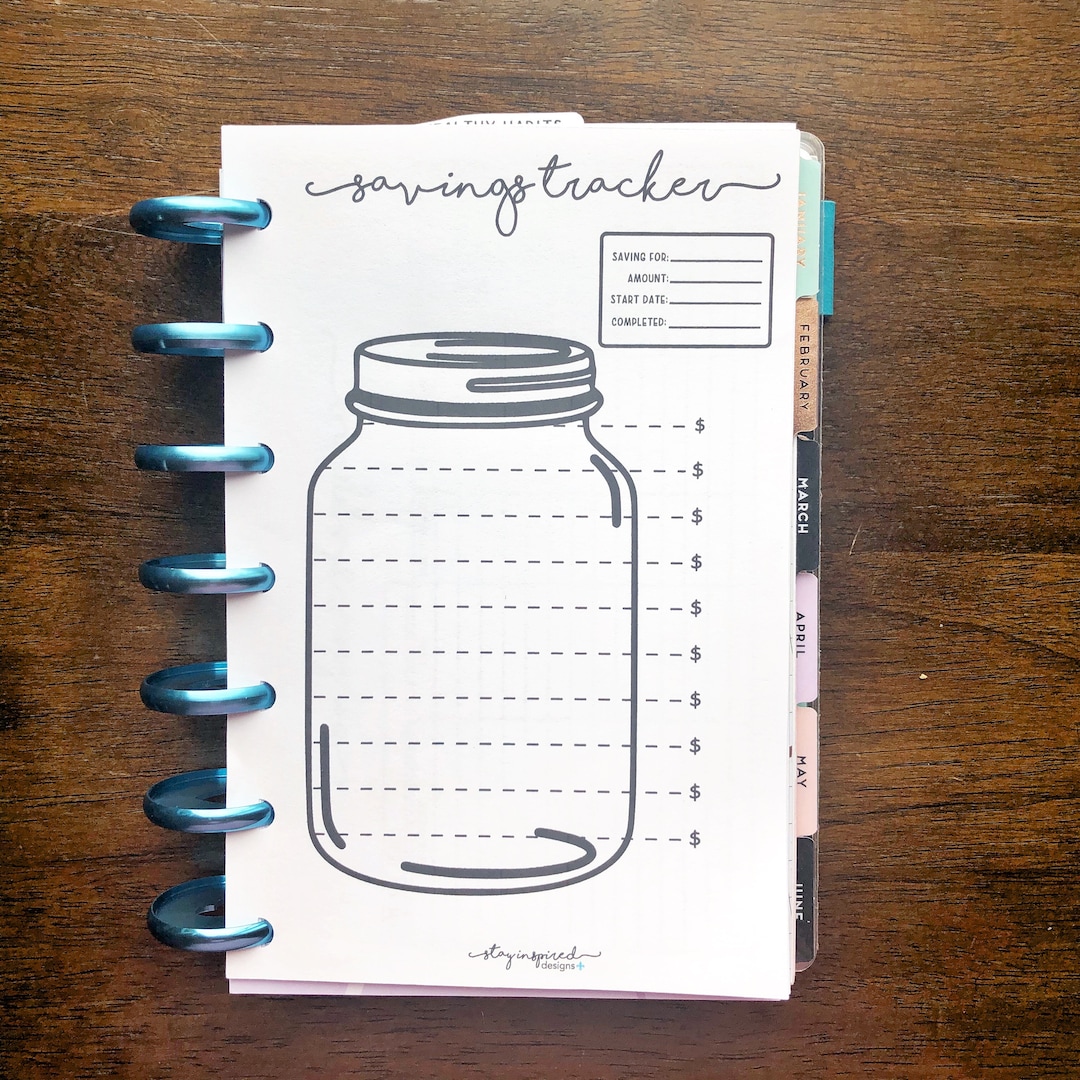 HEALTHY HABITS
savings tracker
SAVING FOR:
AMOUNT:
START DATE:
COMPLETED:
$
$
$
$
$
$
$
$
$
$
JANUARY
FEBRUARY
MARCH
APRIL
MAY
JUNE
stay inspired
designs+